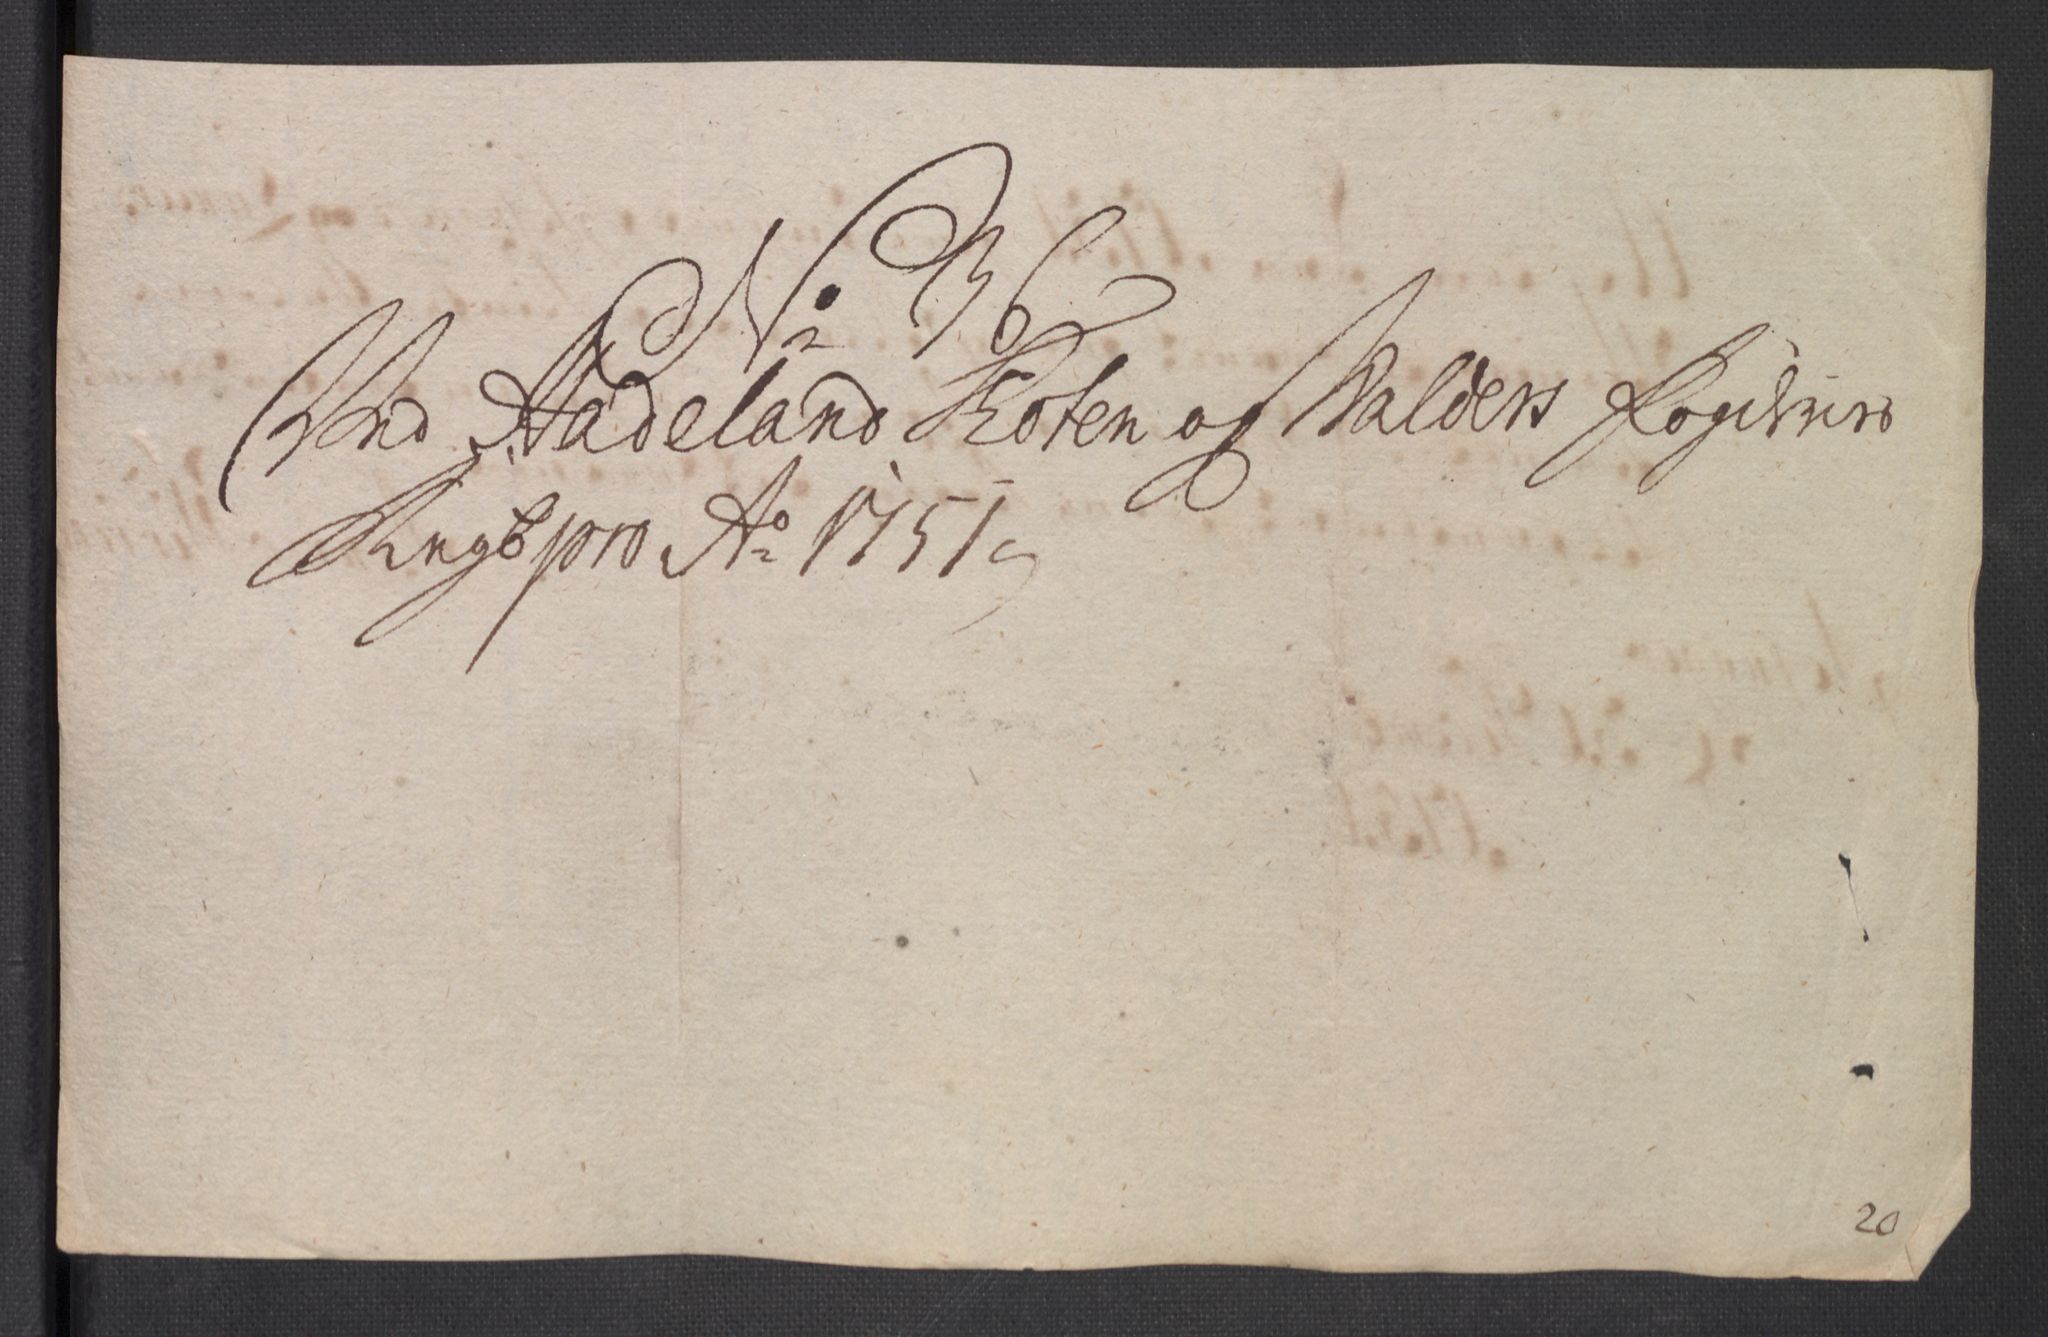 No 36
Ved Hadeland Toten og Valders Fogderies
Regsb pro Ao 1751
20